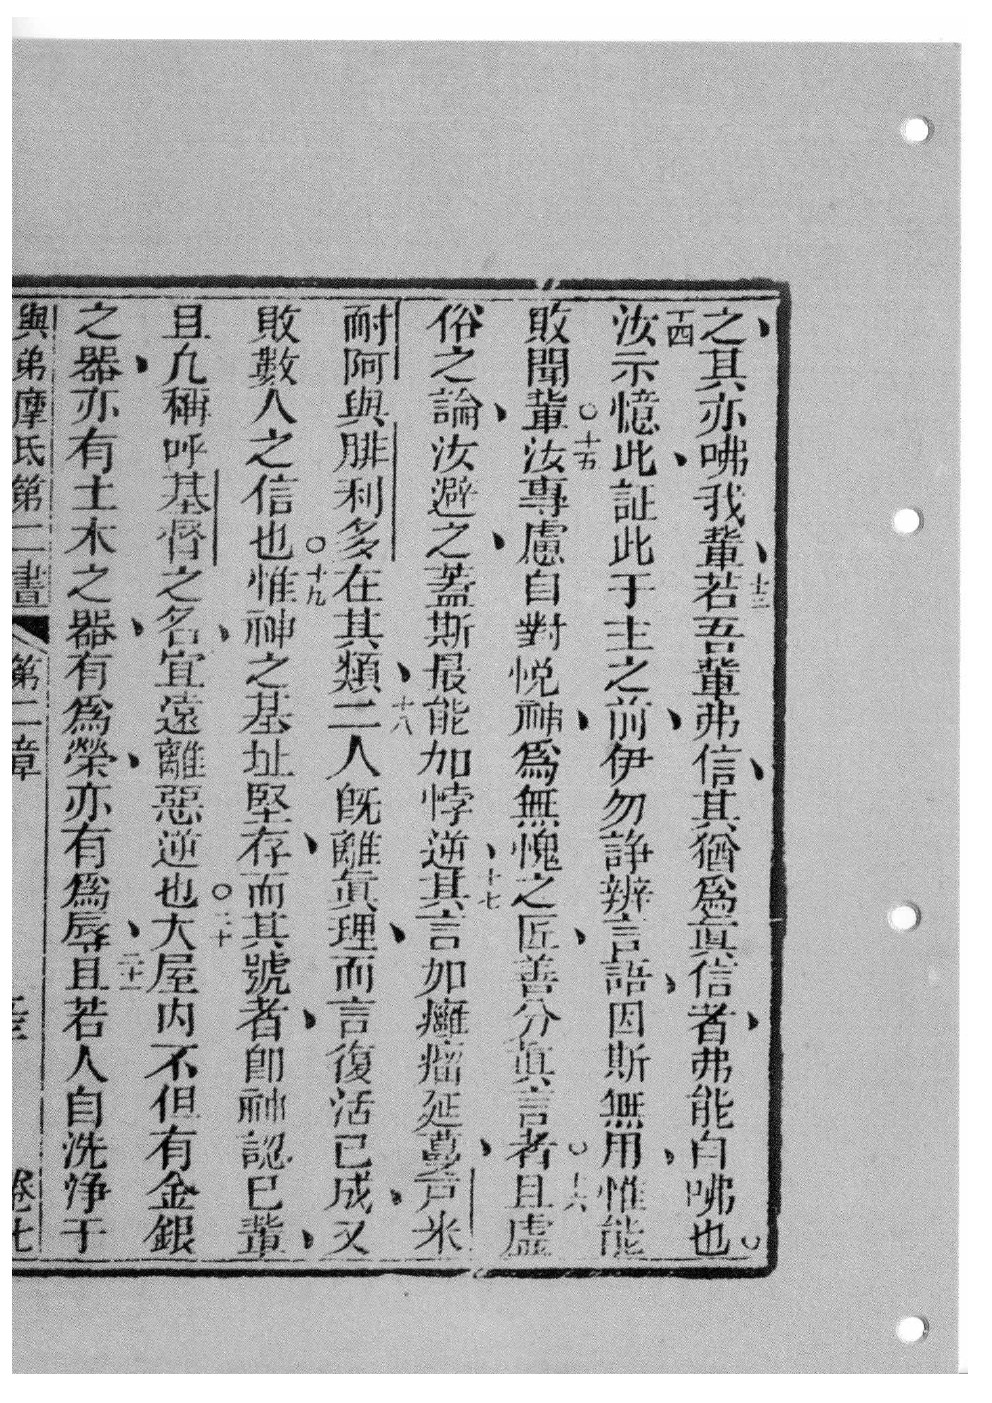 之其亦咈我輩十三若吾輩弗信其猶爲眞信者弗能自咈也
十四汝示憶此証此于主之前伊勿諍辨言語因斯無用惟能
敗聞輩十五汝專慮自對悅神爲無愧之匠善分眞言者十六且虛
俗之論汝避之蓋斯最能加悖逆十七其言如癰瘤延蔓芦米
耐阿與腓利多在其類十八二人旣離眞理而言復活已成又
敗數人之信也十九惟神之基址堅存而其號者卽神認己輩
且凢稱呼基督之名宜遠離惡逆也二十大屋内不但有金銀
之器亦有土木之器有爲榮亦有爲辱二十一且若人自洗凈于
與弟摩氏第二書 第二章 卷七